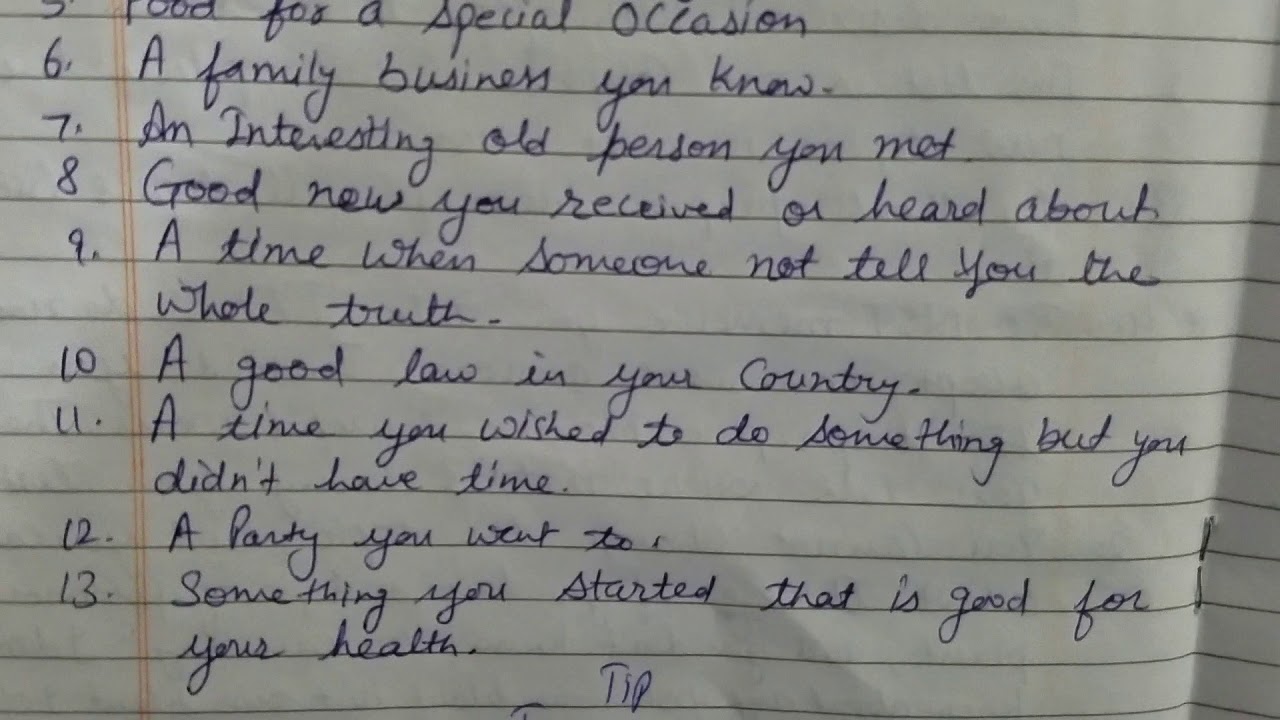 5. Food for a special occasion
6. A family business you know.
7. An Interesting old person you met
8 Good new you received or heard about
9. A time when someone not tell you the
whole truth.
10 A good law in your country.
11. A time you wished to do something but you
didn't have time.
12. A Party you went to.
13. Something you started that is good for
your health.
Tip